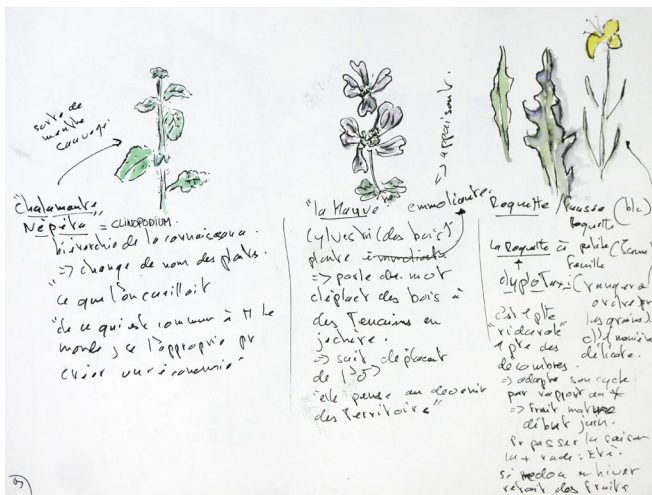 sorte de
menthe
sauvage
"Chalamante
Népéta" = CLINOPODIUM.
hiérarchie de la connaissance.
=> change de nom des plats.
"ce que l'on cueillait
"de ce qui est commun à tt le
monde, se l'approprie pr
créer une économie"
=> appaisant.
"la Mauve" emmoliante.
Sylvestris (des bois)
plante
=> parle du mot
déplact des bois à
des Terrains en
jachère.
=> suit déplacat
de l'
"elle pense au devenir
des Territoires"
Roquette / fausse (blc)
Roquette
la Roquette à petite
feuille
(ranger
ordre
les grains)
d'1 manière
délicate.
c'est 1 plte
"rudérale"
1 plte des
décombres.
=> adapte son cycle
par rapport au
=> fruit mature
début juin.
Pr passer la saison
la + rude : Eté.
si hiver
fruits